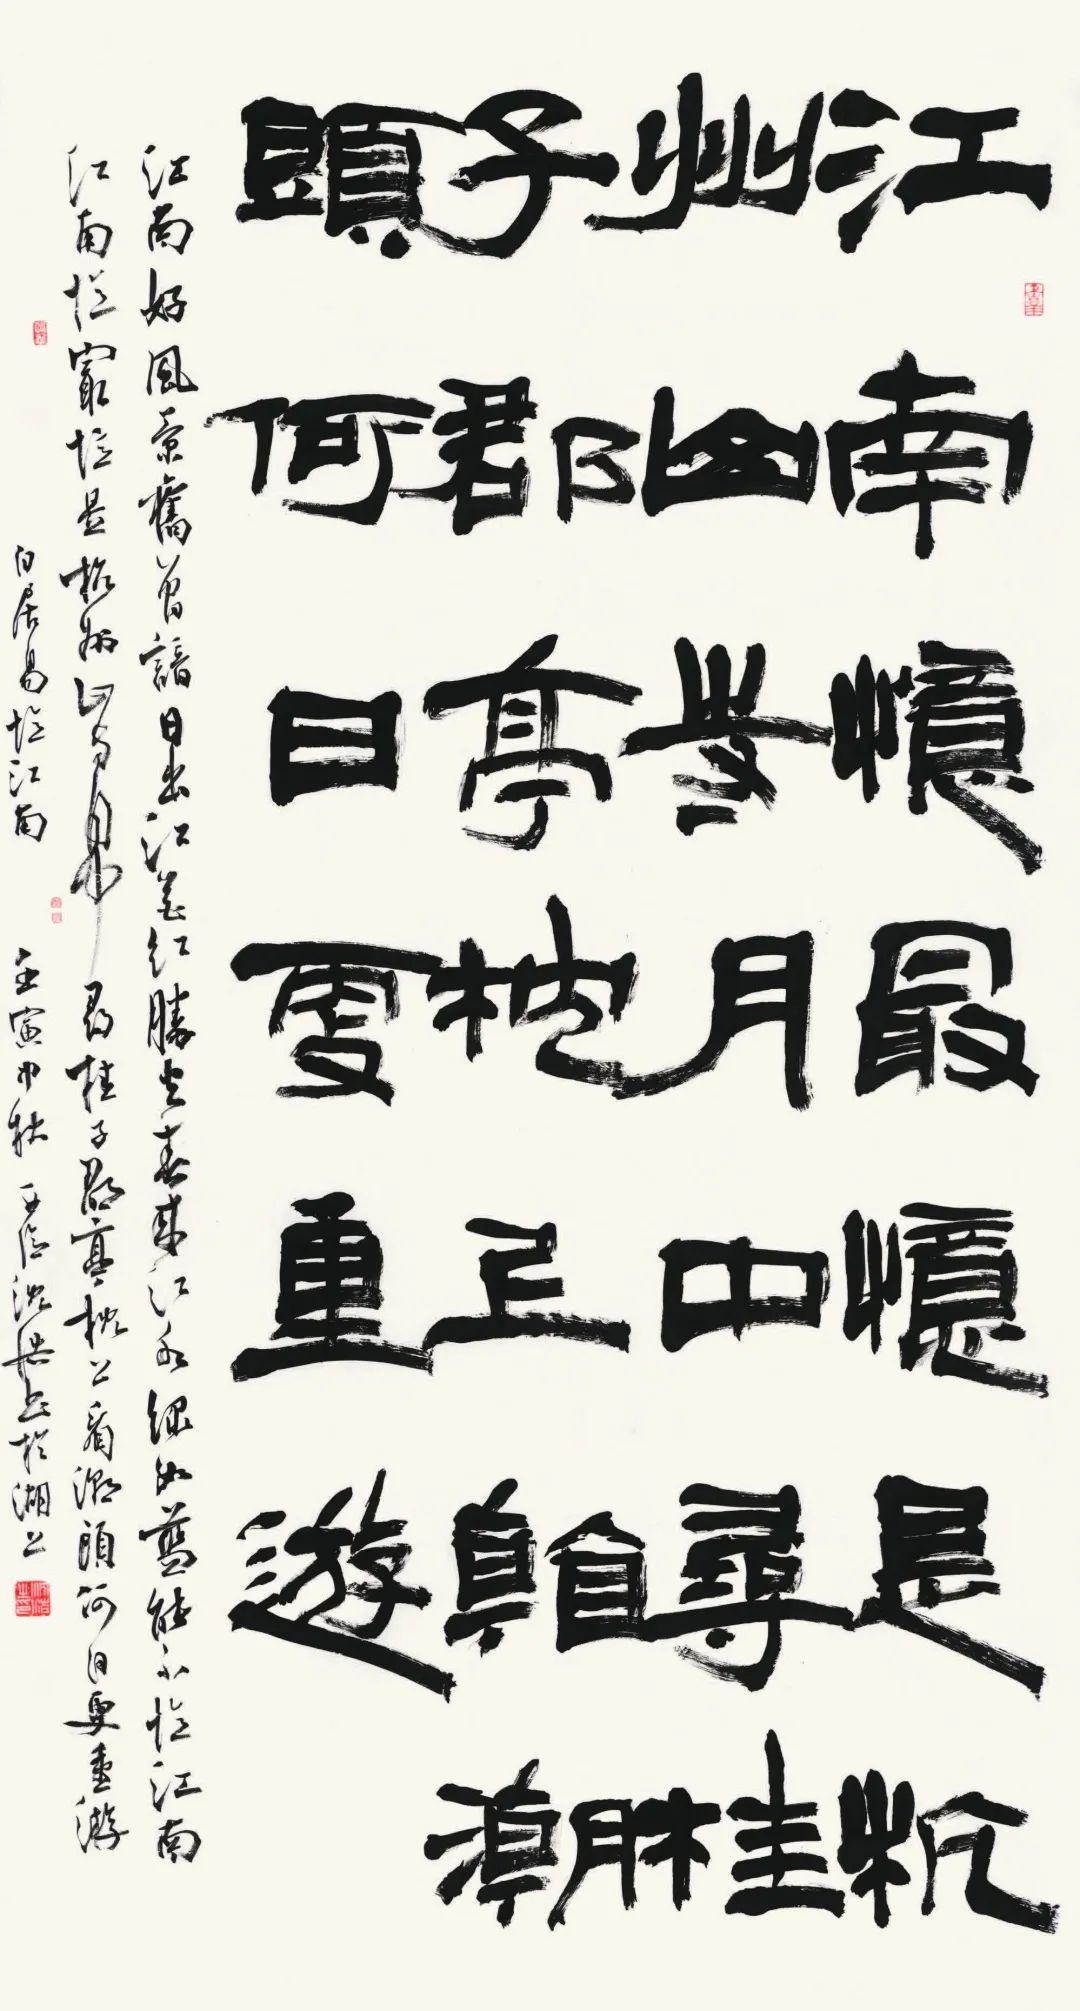 江南憶最憶是杭
州山寺月中尋桂
子郡亭枕上看潮
頭何日更重遊
江南好風景舊曾諳日出江花紅勝火春來江水綠如藍能不憶江南
江南憶最憶是杭州山寺月中尋桂子郡亭枕上看潮頭何日更重游
白居易憶江南 壬寅中秋 沈浩書於湖上